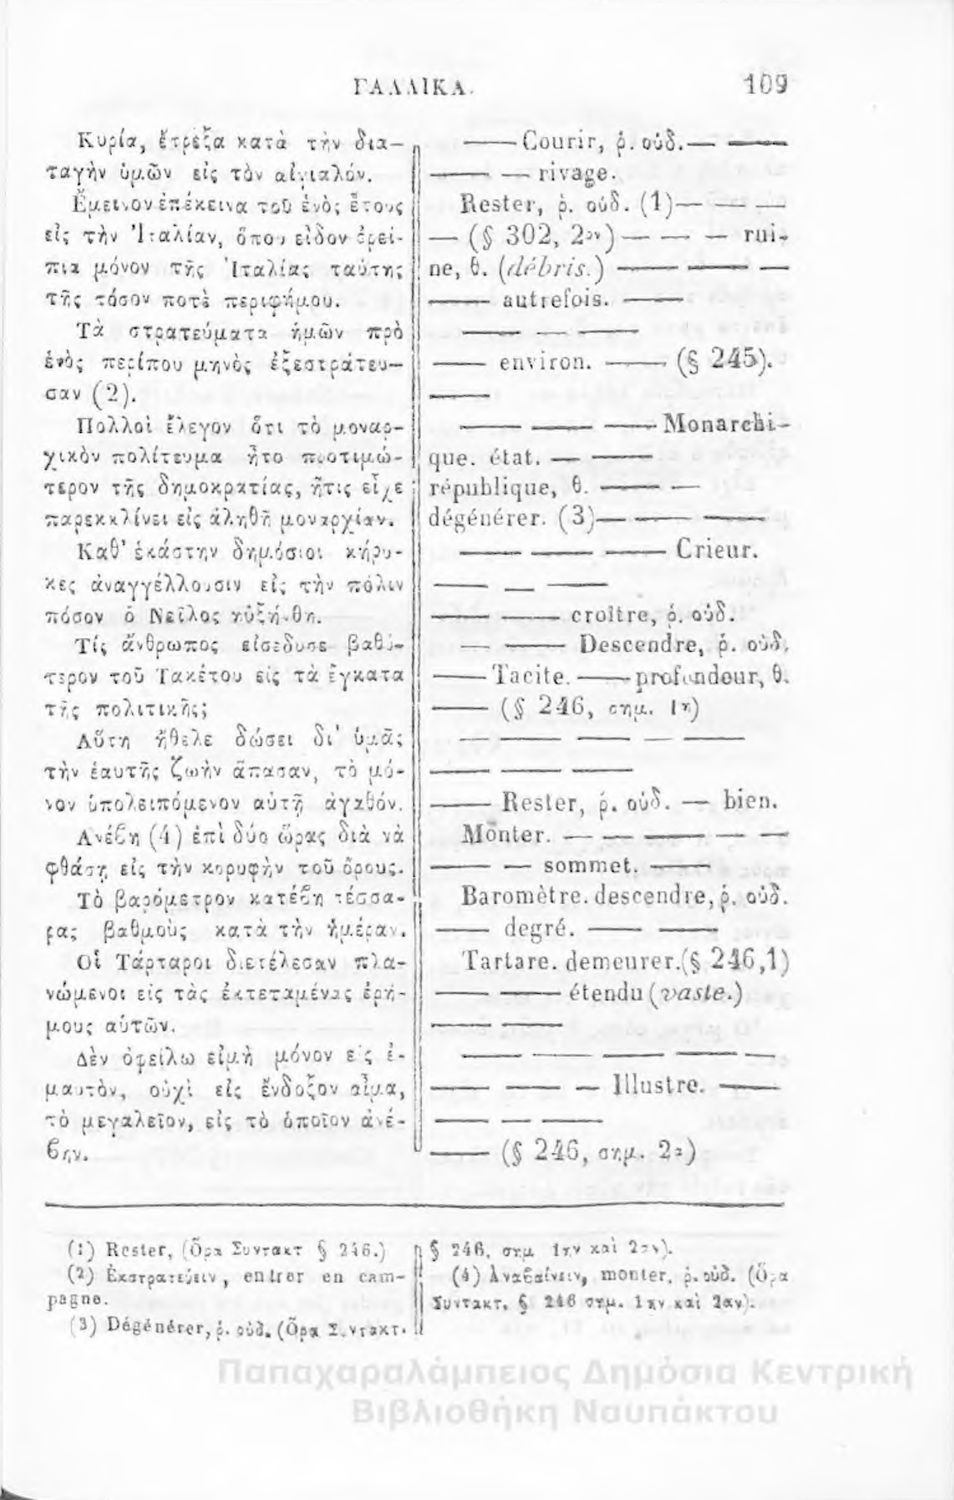 ΓΑΛΛΙΚΑ. 109
Κυρία, ἔτρεξα κατὰ τὴν δια-
ταγὴν ὑμῶν εἰς τὸν αἰγιαλόν.
Ἔμεινον ἐπέκεινα τοῦ ἑνὸς ἔτους
εἰς τὴν Ἰταλίαν, ὅπου εἶδον ἐρεί-
πια μόνον τῆς Ἰταλίας ταύτης
τῆς τόσον ποτὲ περιφήμου.
Τὰ στρατεύματα ἡμῶν πρὸ
ἑνὸς περίπου μηνὸς ἐξεστράτευ-
σαν (2).
Πολλοὶ ἔλεγον ὅτι τὸ μοναρ-
χικὸν πολίτευμα ἦτο προτιμώ-
τερον τῆς δημοκρατίας, ἥτις εἶχε
παρεκκλίνει εἰς ἀληθῆ μοναρχίαν.
Καθ' ἑκάστην δημόσιοι κήρυ-
κες ἀναγγέλλουσιν εἰς τὴν πόλιν
πόσον ὁ Νεῖλος ηὐξήνθη.
Τίς ἄνθρωπος εἰσέδυσε βαθύ-
τερον τοῦ Τακέτου εἰς τὰ ἔγκατα
τῆς πολιτικῆς;
Αὕτη ἤθελε δώσει δι' ὑμᾶς
τὴν ἑαυτῆς ζωὴν ἅπασαν, τὸ μό-
νον ὑπολειπόμενον αὐτῇ ἀγαθόν.
Ἀνέβη (4) ἐπὶ δύο ὥρας διὰ νὰ
φθάσῃ εἰς τὴν κορυφὴν τοῦ ὄρους.
Τὸ βαρόμετρον κατέβη τέσσα-
ρας βαθμοὺς κατὰ τὴν ἡμέραν.
Οἱ Τάρταροι διετέλεσαν πλα-
νώμενοι εἰς τὰς ἐκτεταμένας ἐρή-
μους αὐτῶν.
Δὲν ὀφείλω εἰμὴ μόνον εἰς ἐ-
μαυτὸν, οὐχὶ εἰς ἔνδοξον αἷμα,
τὸ μεγαλεῖον, εἰς τὸ ὁποῖον ἀνέ-
βην.
—— Courir, ῥ. οὐδ. — ——
—— — rivage.
Rester, ῥ. οὐδ. (1) — — —
— (§ 302, 2ον) — — — rui-
ne, θ. (débris.) —— —— —
—— autrefois. ——
—— — ——
—— environ. —— (§ 245).
——
—— —— —— Monarchi-
que. état. — ——
république, θ. —— —
dégénérer. (3) —— ——
—— —— —— Crieur.
—— — ——
—— —— croître, ῥ. οὐδ.
— —— Descendre, ῥ. οὐδ.
—— Tacite. —— profondeur, θ.
—— (§ 246, σημ. 1η)
—— —— —— — ——
—— —— ——
—— Rester, ῥ. οὐδ. — bien.
Monter. — — —— — —
—— — sommet. ——
Baromètre. descendre, ῥ. οὐδ.
—— degré. —— ——
Tartare. demeurer. (§ 246,1)
—— —— étendu (vaste.)
—— ——
—— —— —— ——
—— —— — Illustre. ——
—— — ——
—— (§ 246, σημ. 2α)
(1) Rester, (Ὅρα Συντακτ § 246.)
(2) Ἐκστρατεύειν, entrer en cam-
pagne.
(3) Dégénérer, ῥ. οὐδ. (Ὅρα Συντακτ.
§ 246, σημ 1ην καὶ 2αν).
(4) Ἀναβαίνειν, monter, ῥ. οὐδ. (Ὅρα
Συντακτ. § 246 σημ. 1ην καὶ 2αν).
Παπαχαραλάμπειος Δημόσια Κεντρική
Βιβλιοθήκη Ναυπάκτου